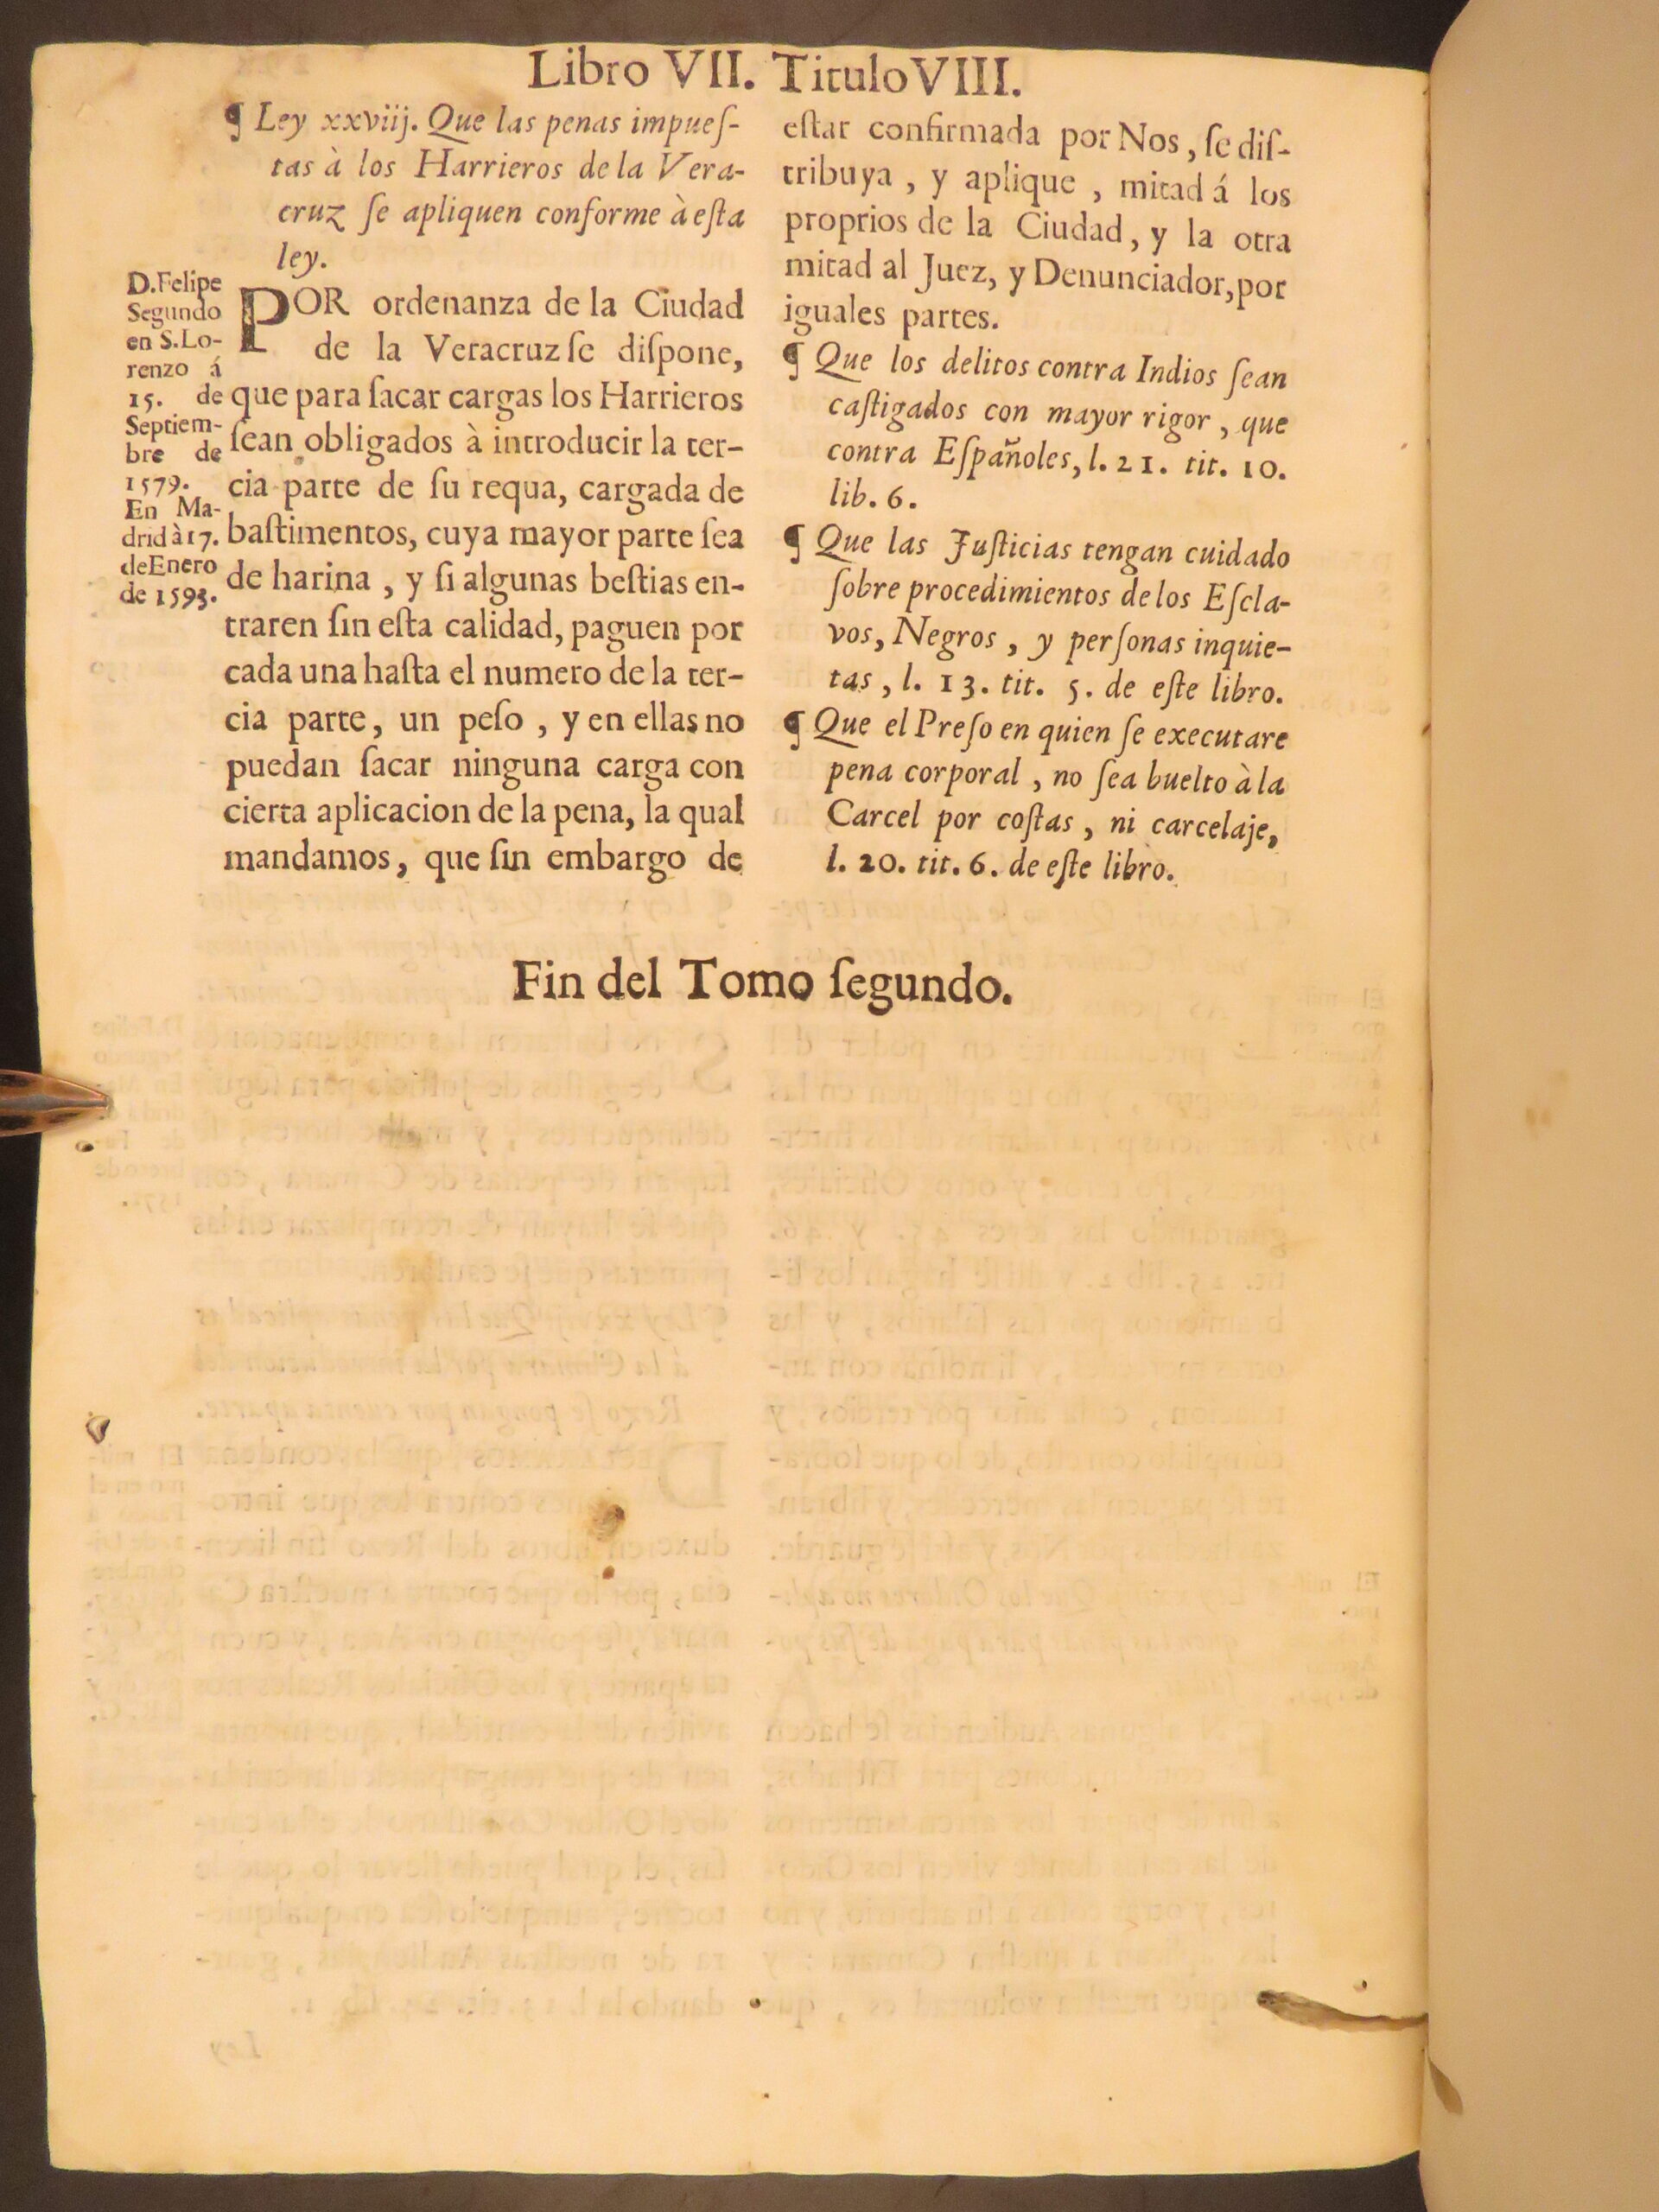 Libro VII. Titulo VIII.
¶ Ley xxviij. Que las penas impueſ-
tas à los Harrieros de la Vera-
cruz ſe apliquen conforme à eſta
ley.
D. Felipe
Segundo
en S. Lo-
renzo á
15. de
Septiem-
bre de
1579.
En Ma-
drid à 17.
de Enero
de 1593.
POR ordenanza de la Ciudad
de la Veracruz ſe diſpone,
que para ſacar cargas los Harrieros
ſean obligados à introducir la ter-
cia parte de ſu requa, cargada de
baſtimentos, cuya mayor parte ſea
de harina, y ſi algunas beſtias en-
traren ſin eſta calidad, paguen por
cada una haſta el numero de la ter-
cia parte, un peſo, y en ellas no
puedan ſacar ninguna carga con
cierta aplicacion de la pena, la qual
mandamos, que ſin embargo de
eſtar confirmada por Nos, ſe diſ-
tribuya, y aplique, mitad á los
proprios de la Ciudad, y la otra
mitad al Juez, y Denunciador, por
iguales partes.
¶ Que los delitos contra Indios ſean
caſtigados con mayor rigor, que
contra Eſpañoles, l. 21. tit. 10.
lib. 6.
¶ Que las Juſticias tengan cuidado
ſobre procedimientos de los Eſcla-
vos, Negros, y perſonas inquie-
tas, l. 13. tit. 5. de eſte libro.
¶ Que el Preſo en quien ſe executare
pena corporal, no ſea buelto à la
Carcel por coſtas, ni carcelaje,
l. 20. tit. 6. de eſte libro.
Fin del Tomo ſegundo.